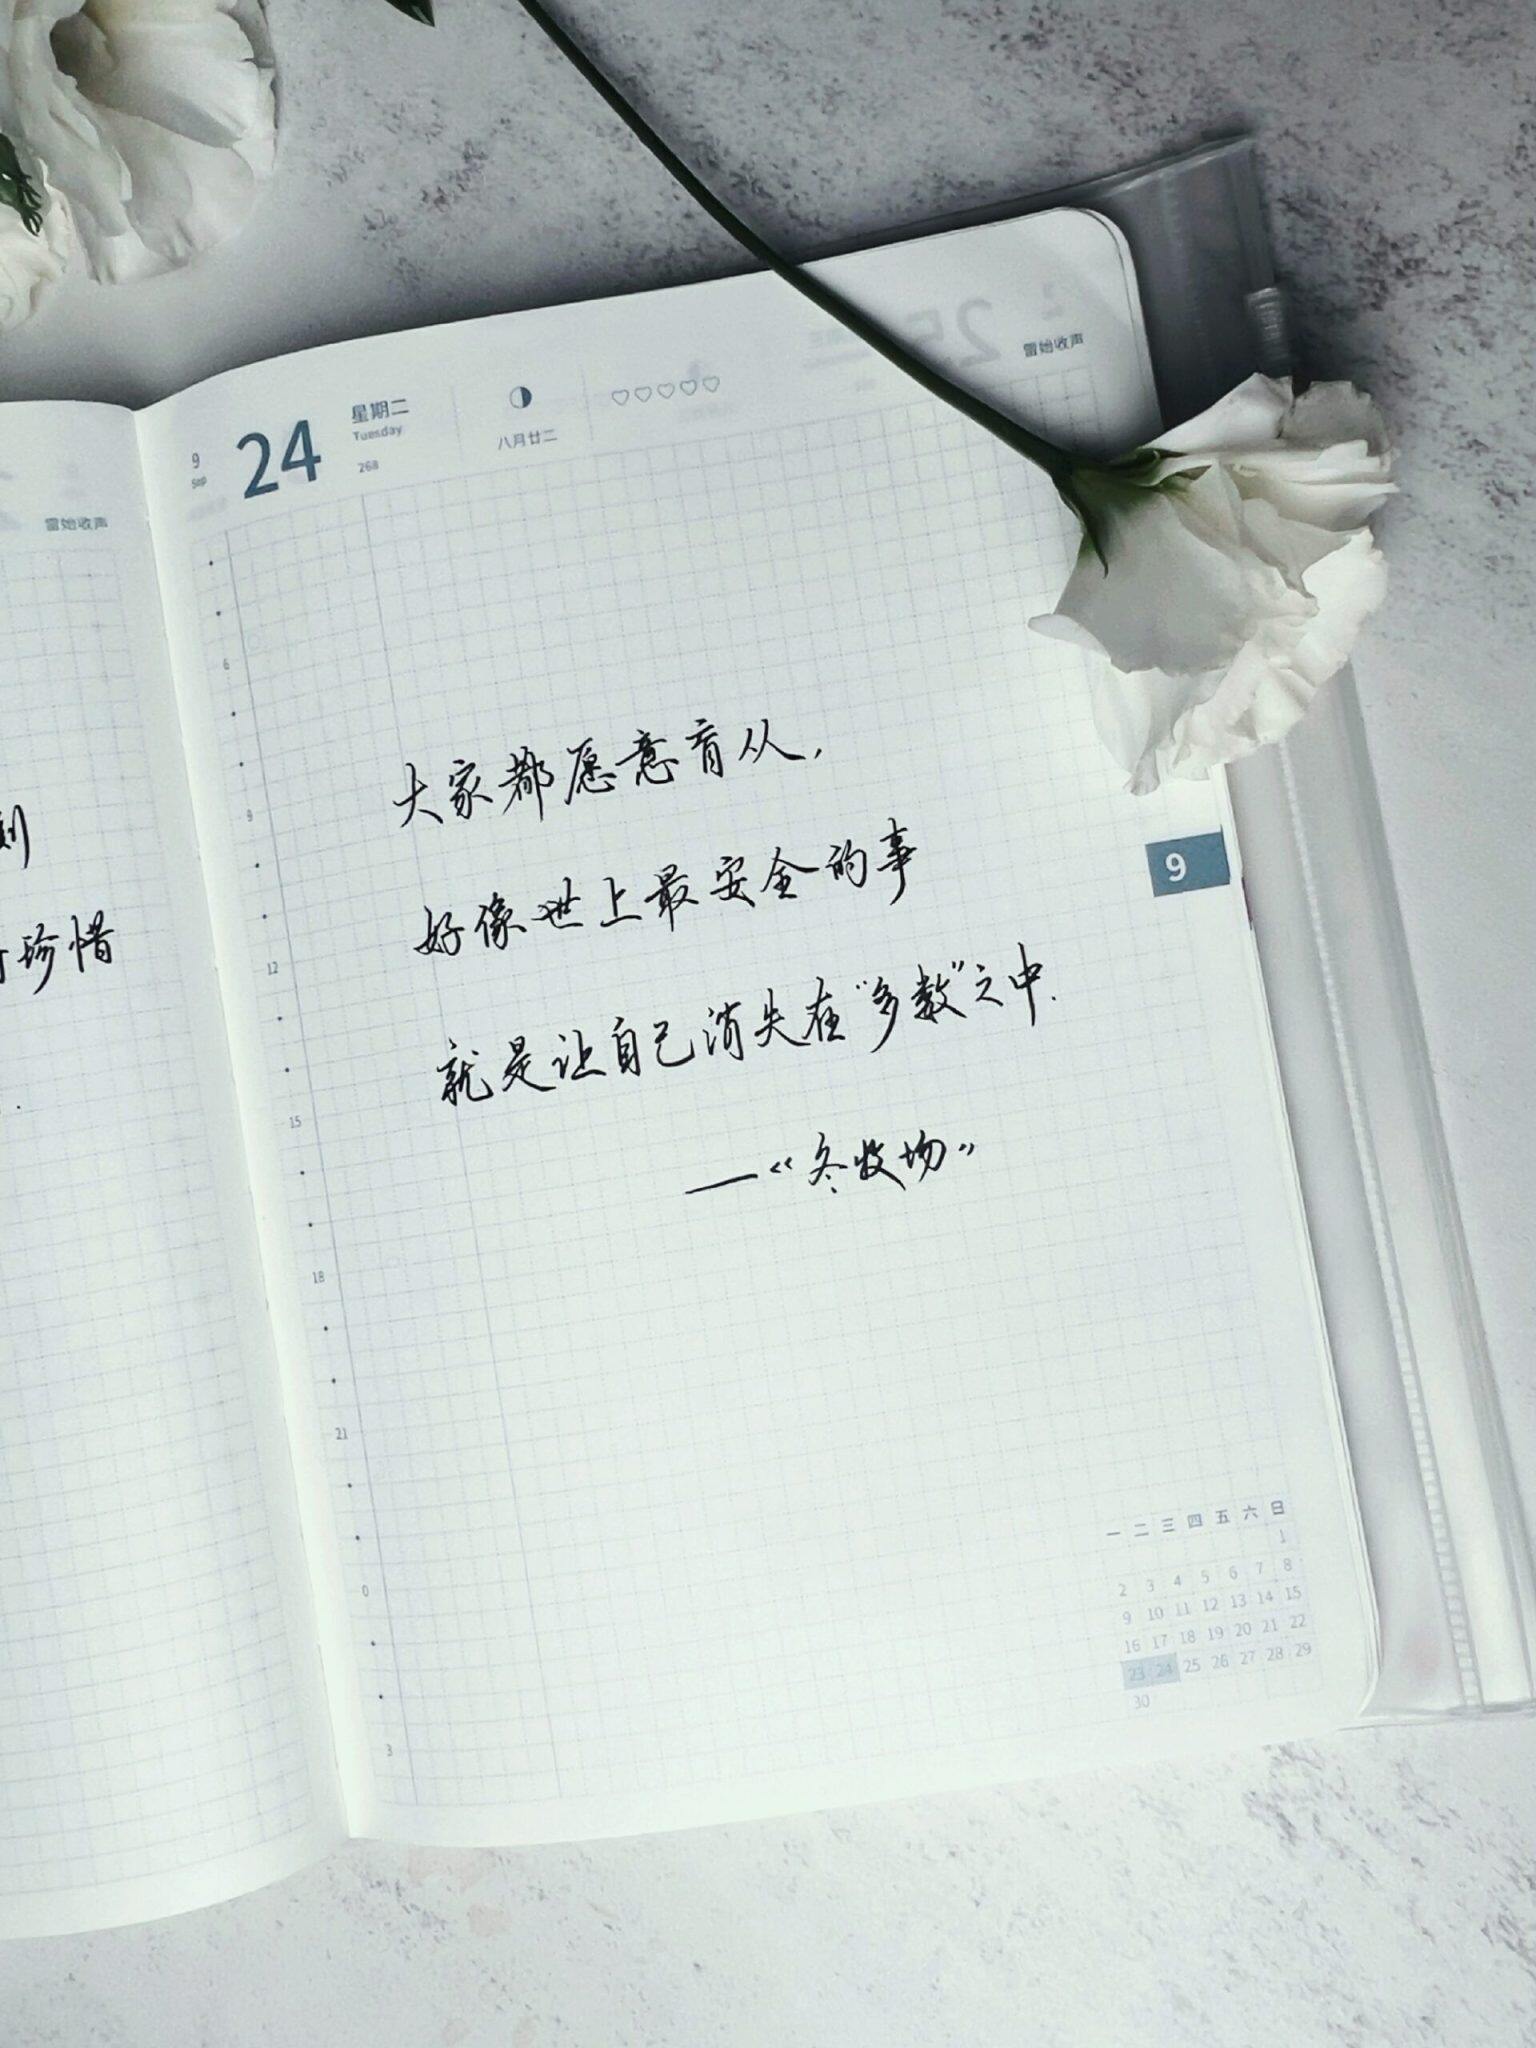 雷始收声
刻
珍惜
9
Sep
24
星期二
Tuesday
268
八月廿二
雷始收声
6
9
12
15
18
21
0
3
大家都愿意盲从,
好像世上最安全的事
就是让自己消失在“多数”之中.
—《冬牧场》
9
一 二 三 四 五 六 日
1
2 3 4 5 6 7 8
9 10 11 12 13 14 15
16 17 18 19 20 21 22
23 24 25 26 27 28 29
30